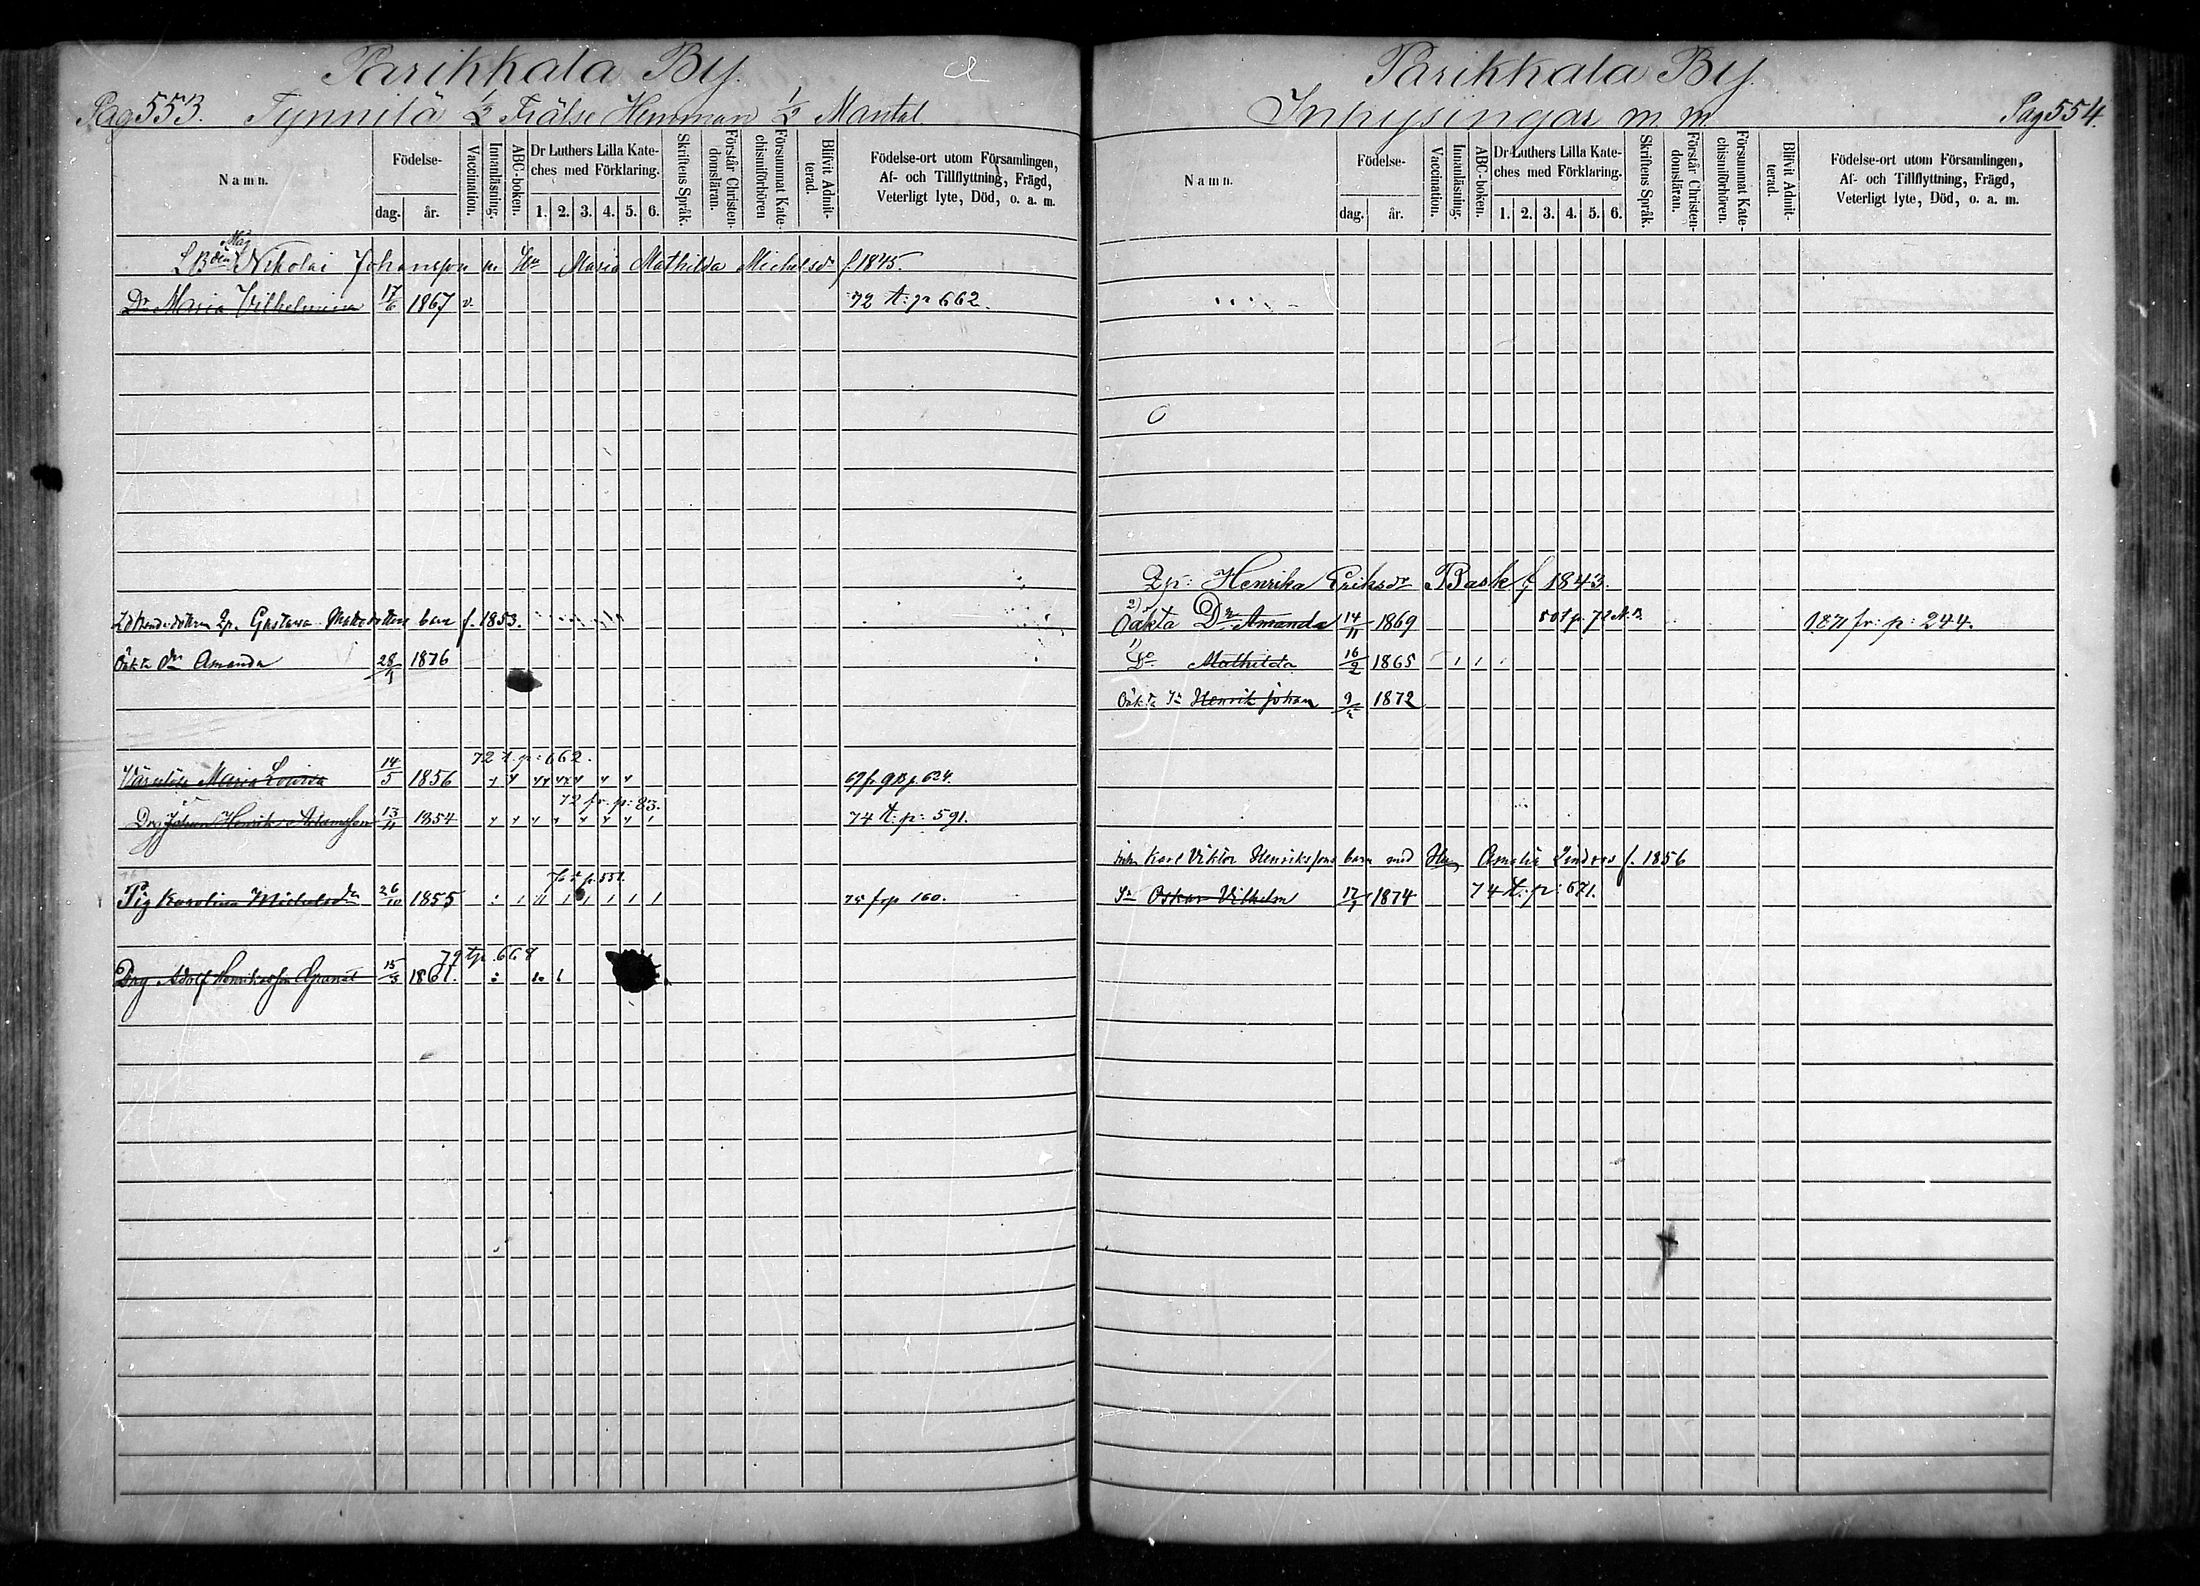 Parikkala By.
Pag 553. Tynnilä 1/3 Frälse Hemman 1/3 Mantal.
Namn.
Födelse-
dag. år.
Vaccination.
Innanläsning.
ABC-boken.
Dr Luthers Lilla Kate-
ches med Förklaring.
1. 2. 3. 4. 5. 6.
Skriftens Språk.
Förstår Christen-
domsläran.
Försummat Kate-
chismiförhören
Blifvit Admit-
terad.
Födelse-ort utom Församlingen,
Af- och Tillflyttning, Frägd,
Veterligt lyte, Död, o. a. m.
Nikolai Johansson Maria Mathilda Michelsdr f. 1845.
Dr Maria Vilhelmina 17/6 1867 v. 72 t. p 662.
Gustava f. 1853.
Oäkta Dr Amanda 28/1 1876
72 t. p: 662.
Maria Lovisa 14/5 1856 69 fr p. 624.
72 fr. p: 83.
Drg Johan Henrik Adamsson 13/11 1854 74 t. p: 591.
Pig Karolina Michelsdr 26/10 1855 75 fr p 160.
79 tp. 668
Drg Adolf Henriksson Granat 15/3 1861.
Parikkala By.
Inhysingar m. m. Pag 554.
Namn.
Födelse-
dag. år.
Vaccination.
Innanläsning.
ABC-boken.
Dr Luthers Lilla Kate-
ches med Förklaring.
1. 2. 3. 4. 5. 6.
Skriftens Språk.
Förstår Christen-
domsläran.
Försummat Kate-
chismiförhören.
Blifvit Admit-
terad.
Födelse-ort utom Församlingen,
Af- och Tillflyttning, Frägd,
Veterligt lyte, Död, o. a. m.
Qp: Henrika Eriksdr Bask f 1843.
2) Oäkta Dr Amanda 14/11 1869 1871 fr: p: 244.
1) Do Mathilda 16/2 1865
Oäkta Sn Henrik Johan 1872
Karl Viktor Henrikssons barn med Hu Amalia Lindros f. 1856
Sn Oskar Vilhelm 17/1 1874 74 t. p: 671.